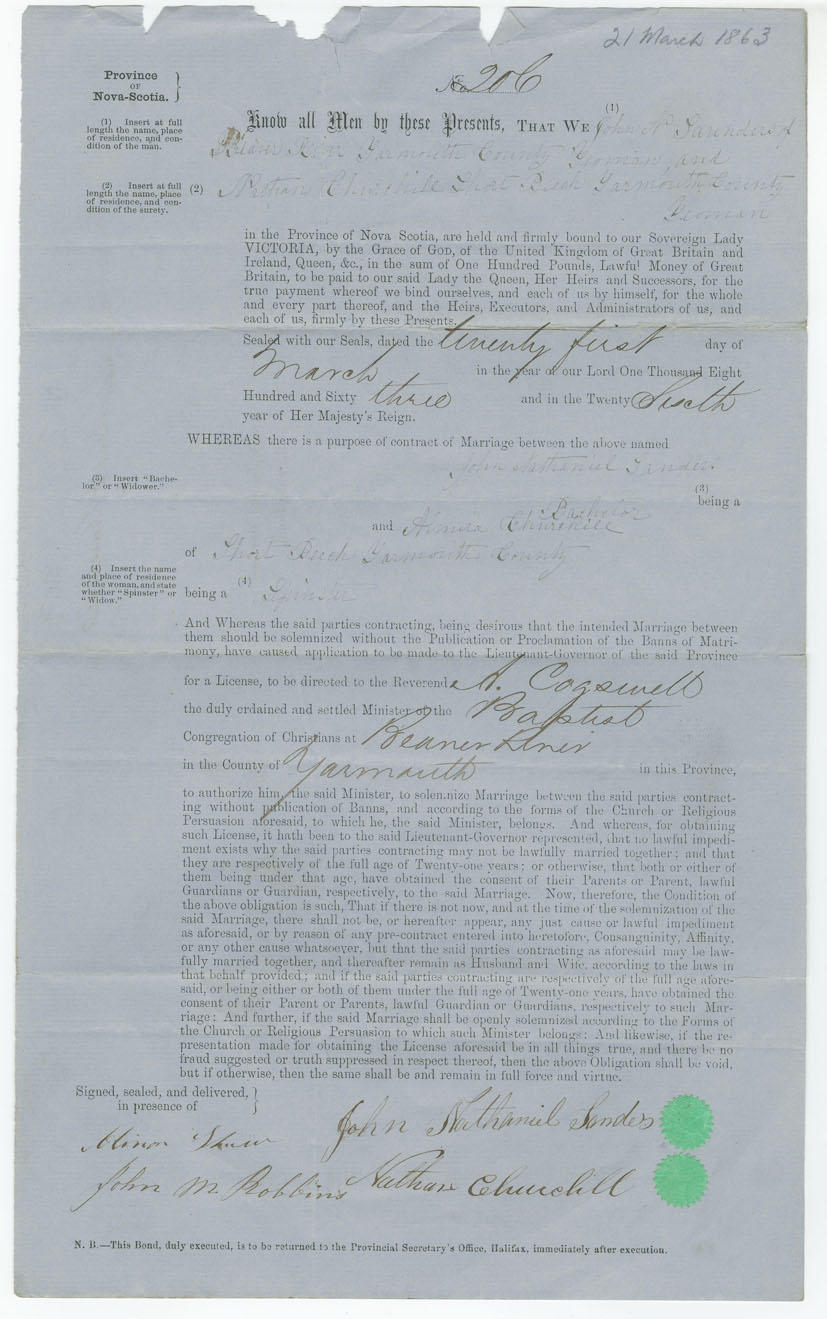 21 March 1863
Province
OF
Nova-Scotia. }
No 206
(1)
Know all Men by these Presents, THAT WE John N Saunders of
(1) Insert at full
length the name, place
of residence, and con-
dition of the man.
Beaver River Yarmouth County Yeoman and
(2) Insert at full
length the name, place
of residence, and con-
dition of the surety.
(2) Nathan Churchill Short Beech Yarmouth County
Yeoman
in the Province of Nova Scotia, are held and firmly bound to our Sovereign Lady
VICTORIA, by the Grace of GOD, of the United Kingdom of Great Britain and
Ireland, Queen, &c., in the sum of One Hundred Pounds, Lawful Money of Great
Britain, to be paid to our said Lady the Queen, Her Heirs and Successors, for the
true payment whereof we bind ourselves, and each of us by himself, for the whole
and every part thereof, and the Heirs, Executors, and Administrators of us, and
each of us, firmly by these Presents.
Sealed with our Seals, dated the twenty first day of
March in the year of our Lord One Thousand Eight
Hundred and Sixty three and in the Twenty Sixth
year of Her Majesty's Reign.
WHEREAS there is a purpose of contract of Marriage between the above named
John Nathaniel Sanders
(3) Insert "Bache-
lor" or "Widower."
(3)
being a
Bachelor
and Almira Churchill
of Short Beech Yarmouth County
(4) Insert the name
and place of residence
of the woman, and state
whether "Spinster" or
"Widow."
being a (4) Spinster
And Whereas the said parties contracting, being desirous that the intended Marriage between
them should be solemnized without the Publication or Proclamation of the Banns of Matri-
mony, have caused application to be made to the Lieutenant-Governor of the said Province
for a License, to be directed to the Reverend A. Cogswell
the duly ordained and settled Minister of the Baptist
Congregation of Christians at Beaver River
in the County of Yarmouth in this Province,
to authorize him, the said Minister, to solemnize Marriage between the said parties contract-
ing without publication of Banns, and according to the forms of the Church or Religious
Persuasion aforesaid, to which he, the said Minister, belongs. And whereas, for obtaining
such License, it hath been to the said Lieutenant-Governor represented, that no lawful impedi-
ment exists why the said parties contracting may not be lawfully married together; and that
they are respectively of the full age of Twenty-one years; or otherwise, that both or either of
them being under that age, have obtained the consent of their Parents or Parent, lawful
Guardians or Guardian, respectively, to the said Marriage. Now, therefore, the Condition of
the above obligation is such, That if there is not now, and at the time of the solemnization of the
said Marriage, there shall not be, or hereafter appear, any just cause or lawful impediment
as aforesaid, or by reason of any pre-contract entered into heretofore, Consanguinity, Affinity,
or any other cause whatsoever, but that the said parties contracting as aforesaid may be law-
fully married together, and thereafter remain as Husband and Wife, according to the laws in
that behalf provided; and if the said parties contracting are respectively of the full age afore-
said, or being either or both of them under the full age of Twenty-one years, have obtained the
consent of their Parent or Parents, lawful Guardian or Guardians, respectively to such Mar-
riage: And further, if the said Marriage shall be openly solemnized according to the Forms of
the Church or Religious Persuasion to which such Minister belongs: And likewise, if the re-
presentation made for obtaining the License aforesaid be in all things true, and there be no
fraud suggested or truth suppressed in respect thereof, then the above Obligation shall be void,
but if otherwise, then the same shall be and remain in full force and virtue.
Signed, sealed, and delivered, }
in presence of }
John Nathaniel Sanders
Minor Shaw
John M Robbins
Nathan Churchill
N. B.—This Bond, duly executed, is to be returned to the Provincial Secretary's Office, Halifax, immediately after execution.